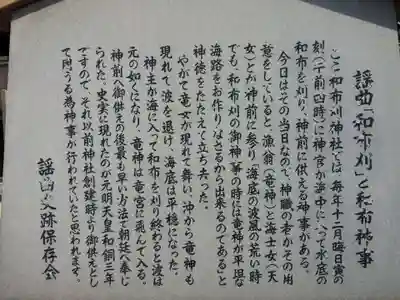 謡曲「和布刈」と和布刈神事
ここ和布刈神社では、毎年十二月晦日寅の
刻(午前四時)に神官が海中に入って水底の
和布を刈り、神前に供える神事がある。
今日はその当日なので、神職の者がその用
意をしていると、漁翁(竜神)と海士女(天
女)とが神前に参り「海底の波風の荒い時
でも、和布刈の御神事の時には竜神が平坦な
海路をお作りなさるから出来るのである」と
神徳をたたえて立ち去った。
やがて竜女が現れて舞い、沖から竜神も
現れて波を退け、海底は平穏になった。
神主が海に入って和布を刈り終わると波は
元の如くになり、竜神は竜宮に飛んで入る。
神前へ御供えの後最も早い方法で朝廷へ奉じ
られた、史実に現れたのが元明天皇和銅三年
ですので、それ以前神社創建時より御供えとし
て用うる為神事が行われていたと思われます。
謡曲史跡保存会